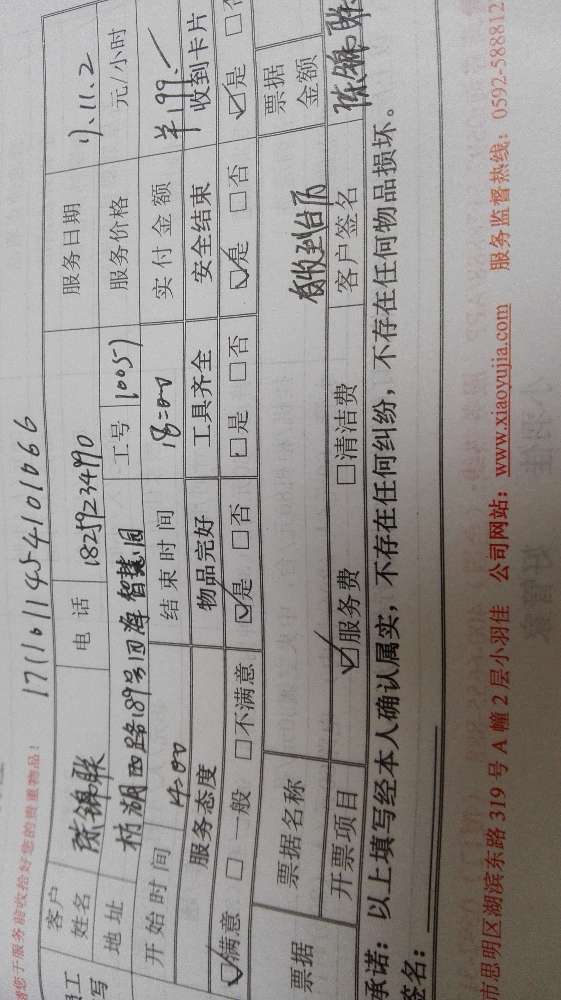 请您于服务前收拾好您的贵重物品!
1711011454101066
客户姓名 陈锦联 电话 18259234990 服务日期 17.11.2
地址 湖西路189号四海智慧园 工号 10057 服务价格 元/小时
开始时间 14:00 结束时间 18:00 实付金额 ¥199.-
服务态度 物品完好 工具齐全 安全结束 收到卡片
☑满意 □一般 □不满意 ☑是 □否 ☑是 □否 ☑是 □否 ☑是 □否
票据 票据名称 收到 票据金额
开票项目 ☑服务费 □清洁费 客户签名 陈锦联
承诺:以上填写经本人确认属实,不存在任何纠纷,不存在任何物品损坏。
签名:
市思明区湖滨东路 319 号 A 幢 2 层小羽佳 公司网站:www.xiaoyujia.com 服务监督热线:0592-588812